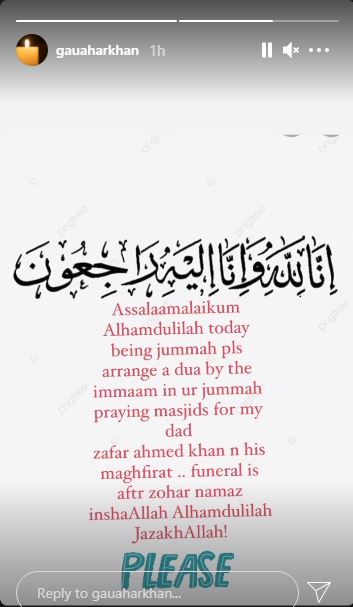 gauaharkhan 1h
إنا لله وإنا إليه راجعون
Assalaamalaikum
Alhamdulilah today
being jummah pls
arrange a dua by the
immaam in ur jummah
praying masjids for my
dad
zafar ahmed khan n his
maghfirat .. funeral is
aftr zohar namaz
inshaAllah Alhamdulilah
JazakhAllah!
PLEASE
Reply to gauaharkhan...